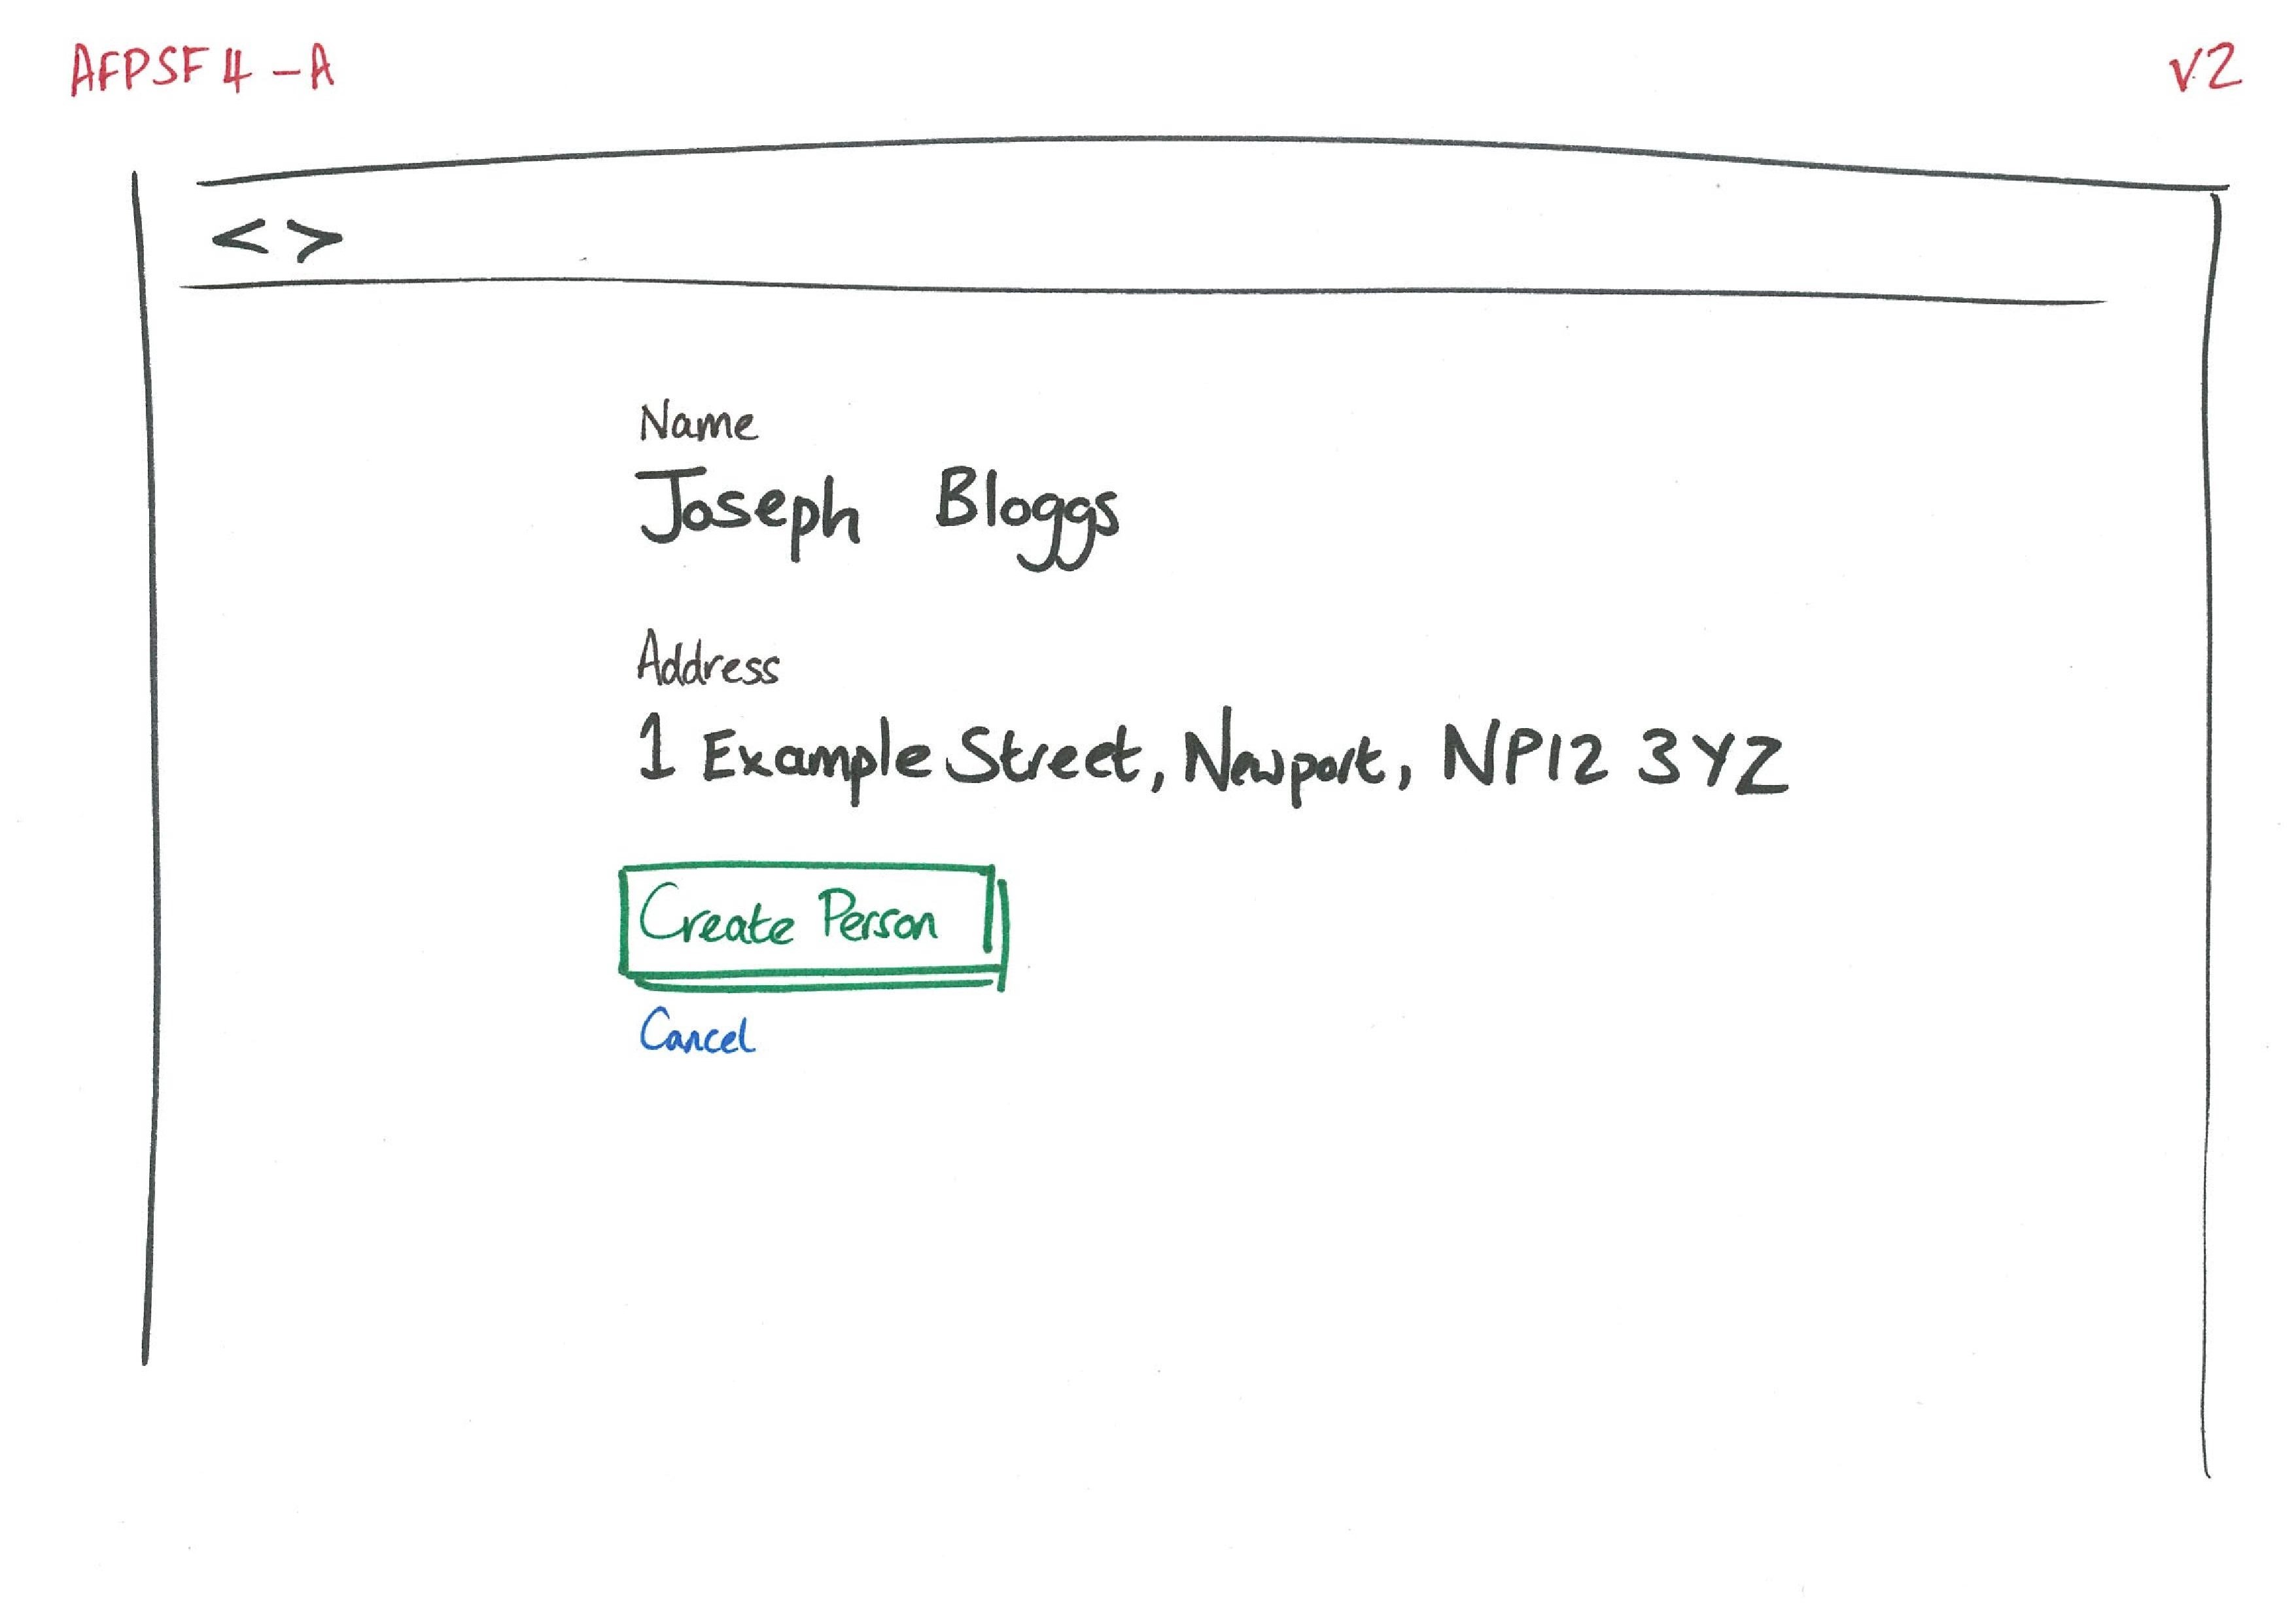 AFPSF4-A
v2
< >
Name
Joseph Bloggs
Address
1 Example Street, Newport, NP12 3YZ
Create Person
Cancel